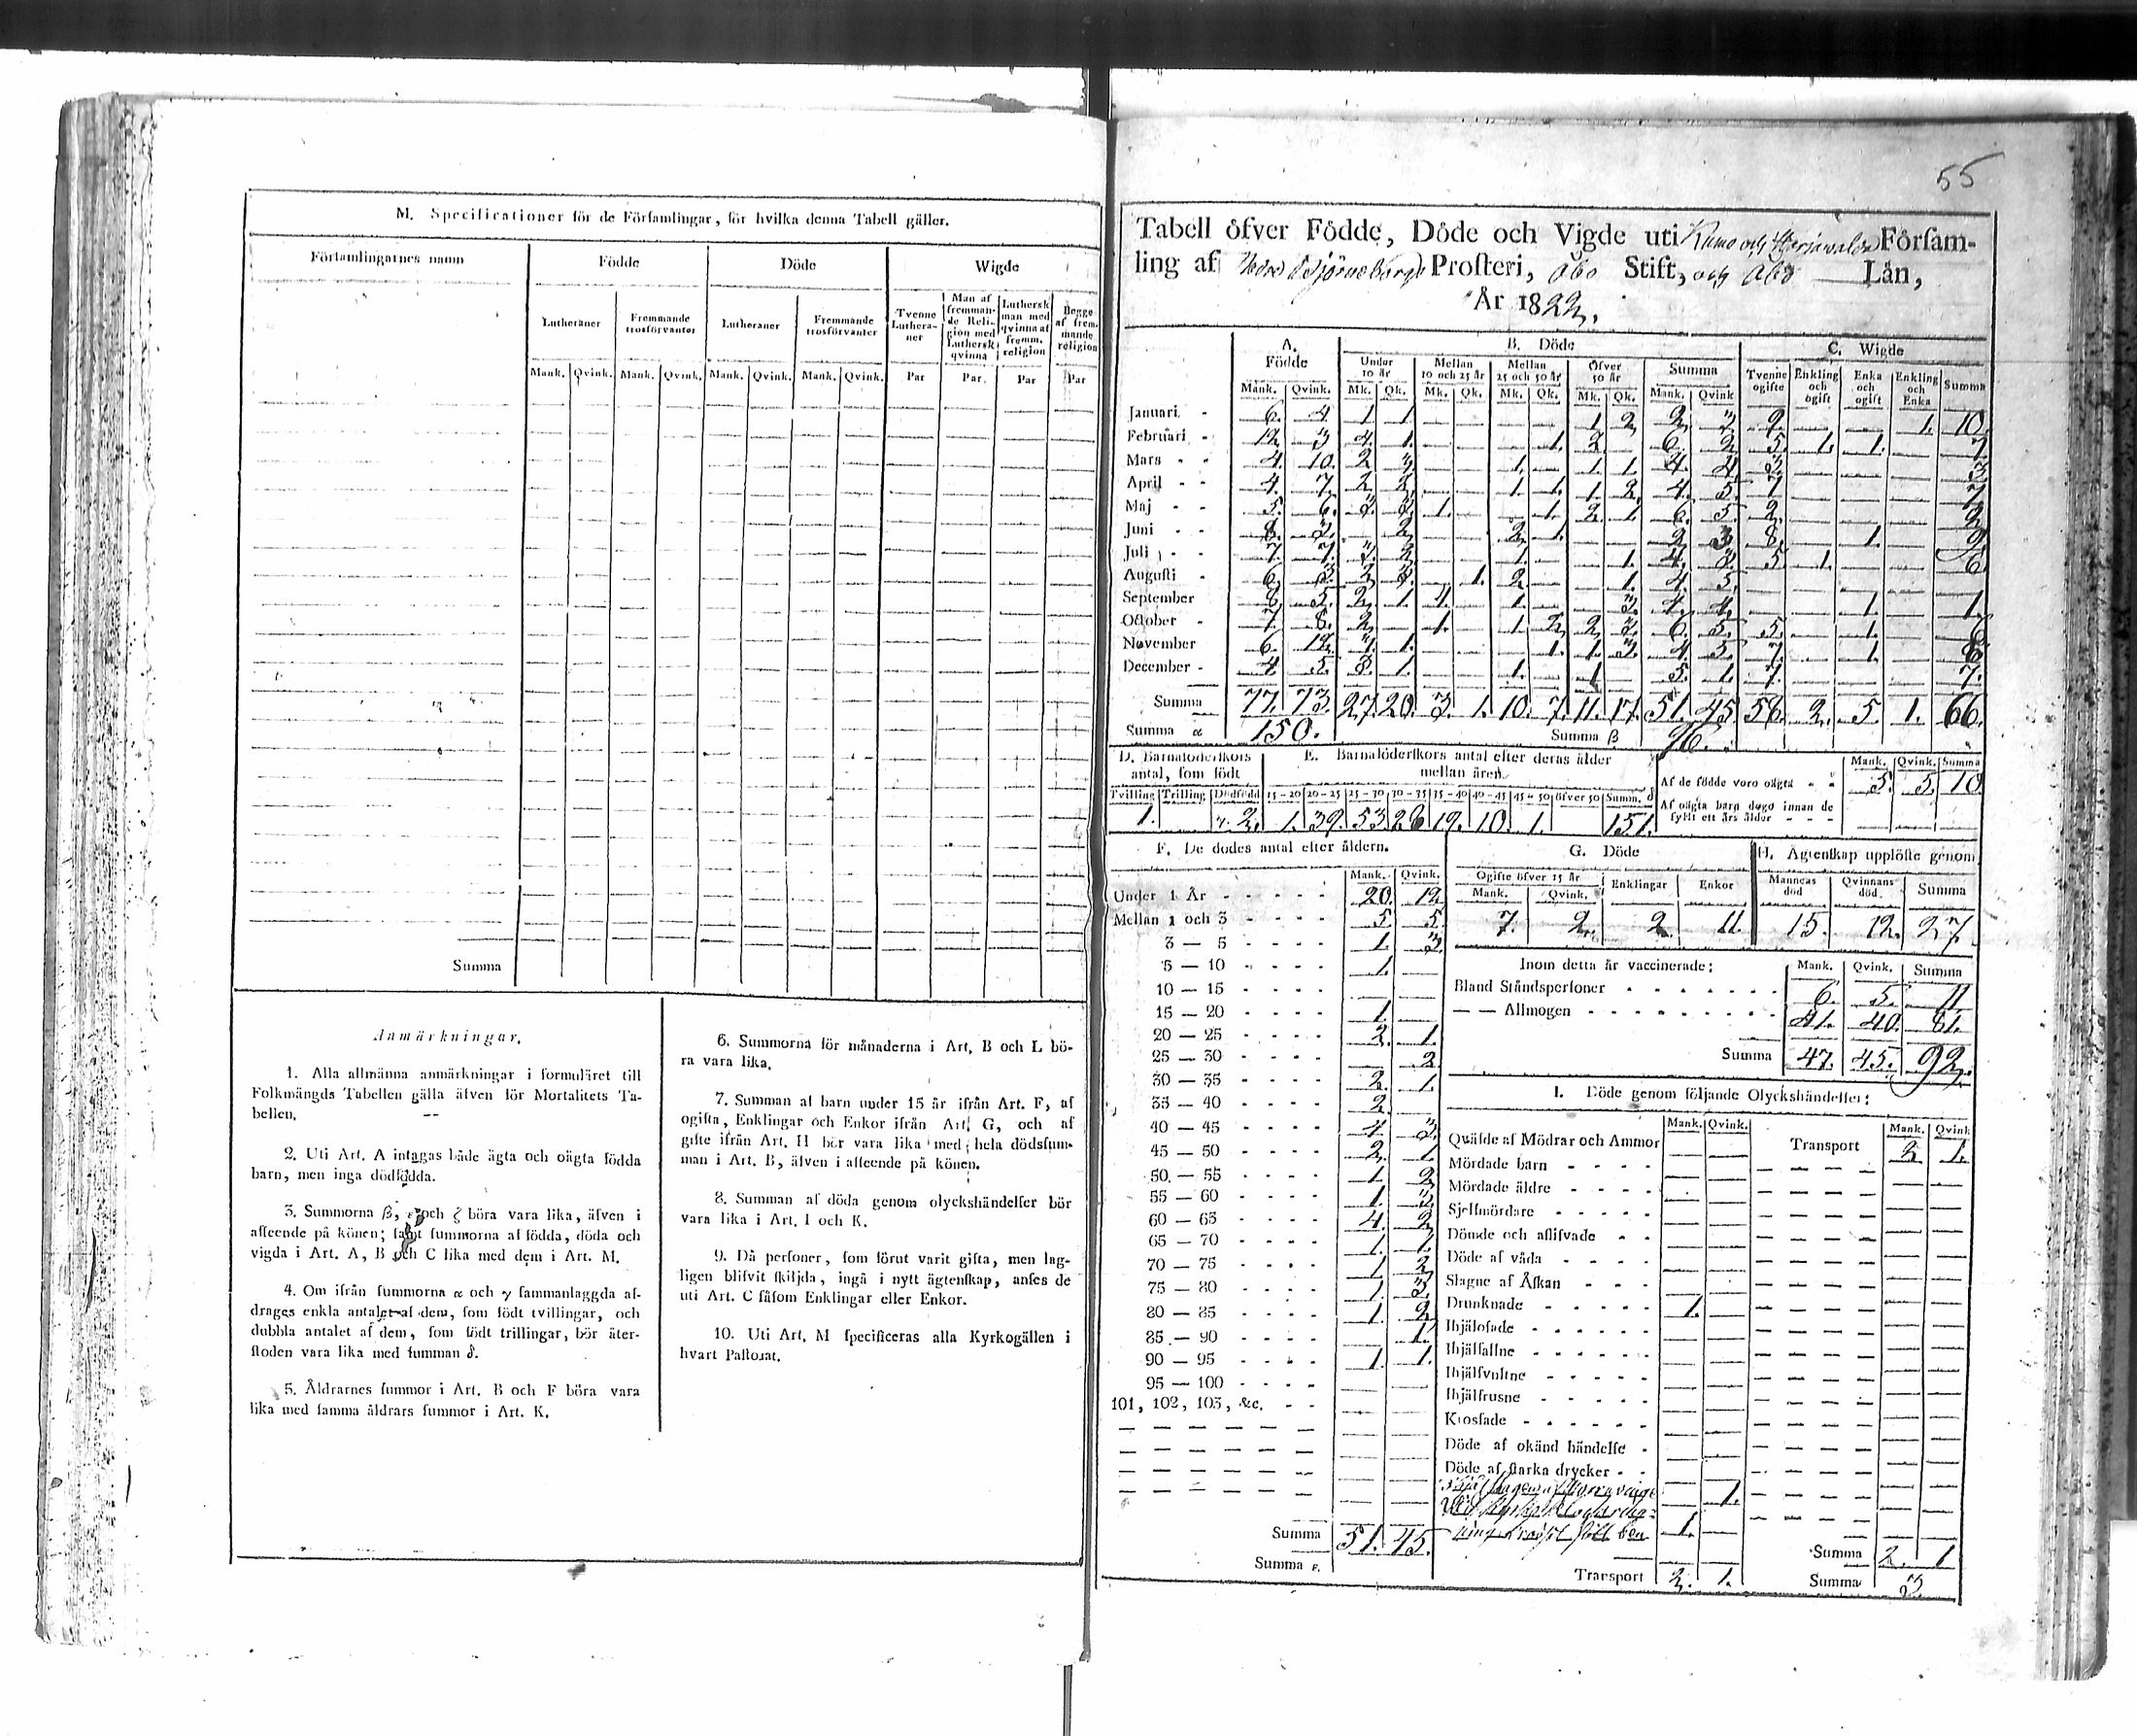 M. Specificationer för de Församlingar, för hvilka denna Tabell gäller.
Församlingarnes namn | Födde | Döde | Wigde
Lutheraner | Fremmande trosförvanter | Lutheraner | Fremmande trosförvanter | Tvenne Lutheraner | Man af fremmande Religion med Luthersk qvinna | Luthersk man med qvinna af fremm. religion | Begge af fremmande religion
Mank. | Qvink. | Mank. | Qvink. | Mank. | Qvink. | Mank. | Qvink. | Par | Par | Par | Par
Summa
Anmärkningar.
1. Alla allmänna anmärkningar i formuläret till
Folkmängds Tabellen gälla äfven för Mortalitets Ta-
bellen.
2. Uti Art. A intagas både ägta och oägta födda
barn, men inga dödfödda.
3. Summorna β, ε och ζ böra vara lika, äfven i
afseende på könen; samt summorna af födda, döda och
vigda i Art. A, B och C lika med dem i Art. M.
4. Om ifrån summorna α och γ sammanlaggda af-
drages enkla antalet af dem, som födt tvillingar, och
dubbla antalet af dem, som födt trillingar, bör åter-
stoden vara lika med summan δ.
5. Åldrarnes summor i Art. B och F böra vara
lika med samma åldrars summor i Art. K.
6. Summorna för månaderna i Art. B och L bö-
ra vara lika.
7. Summan af barn under 15 år ifrån Art. F, af
ogifta, Enklingar och Enkor ifrån Art. G, och af
gifte ifrån Art. H bör vara lika med hela dödssum-
man i Art. B, äfven i afseende på könen.
8. Summan af döda genom olyckshändelser bör
vara lika i Art. I och K.
9. Då personer, som förut varit gifta, men lag-
ligen blifvit skiljda, ingå i nytt ägtenskap, anses de
uti Art. C såsom Enklingar eller Enkor.
10. Uti Art. M specificeras alla Kyrkogällen i
hvart Pastorat.
55
Tabell öfver Födde, Döde och Vigde uti Kumo och Församl-
ling af Nedre Björneborgs Prosteri, Åbo Stift, och Åbo Län,
År 1822.
A. Födde | B. Döde | C. Wigde
Under 10 år | Mellan 10 och 25 år | Mellan 25 och 50 år | Öfver 50 år | Summa | Tvenne ogifte | Enkling och ogift | Enka och ogift | Enkling och Enka | Summa
Mank. | Qvink. | Mk. | Qk. | Mk. | Qk. | Mk. | Qk. | Mk. | Qk. | Mank. | Qvink
Januari 6. 4. 1 1 1 2 2 3 2 1. 10.
Februari 12 3 4. 1. 1. 2 6. 2 5. 1. 1. 7
Mars 4. 10. 2 3 1. 1. 1. 4. 4 3 3
April 4. 7. 2 2 1. 1. 1. 2. 4. 5. 7 7
Maj 5. 6. 3 3 1. 1. 2. 1. 6. 5. 2. 2
Juni 8. 2 2. 1. 2 3 8. 1. 9
Juli 7. 7. 3. 2 1. 1. 4. 3. 5. 1. 6.
Augusti 6. 2 3. 1. 2. 1. 4. 5.
September 8. 5. 2. 1. 1. 1. 3. 4. 4. 1. 1.
October 7. 8. 2. 1. 1. 2 2 3 6. 5. 5. 1. 6
November 6. 12. 1. 1. 1. 1. 3. 4. 5. 7. 1. 8
December 4 5. 3. 1. 1. 1 5. 1. 7. 7.
Summa 77. 73. 27. 20. 3. 1. 10. 7. 11. 17. 51. 45. 58. 2. 5. 1. 66.
Summa α 150. Summa β 96.
D. Barnaföderskors antal, som födt | E. Barnaföderskors antal efter deras ålder mellan åren
Tvilling | Trilling | Dödfödd | 15-20 | 20-25 | 25-30 | 30-35 | 35-40 | 40-45 | 45-50 | öfver 50 | Summ. δ
1. γ. 2. 1. 39. 53 28 19. 10. 1. 151.
Mank. | Qvink. | Summa
Af de födde voro oägta 5. 5. 10
Af oägta barn dogo innan de fyllt ett års ålder
F. De dödes antal efter åldern.
Mank. | Qvink.
Under 1 År 20. 12
Mellan 1 och 3 5. 5.
3 — 5 1. 3.
5 — 10 1.
10 — 15
15 — 20 1.
20 — 25 2. 1.
25 — 30 2.
30 — 35 2. 1
35 — 40 2.
40 — 45 4. 3.
45 — 50 2. 1
50 — 55 1. 2
55 — 60 1. 3
60 — 65 4. 2
65 — 70 1. 1.
70 — 75 1 2
75 — 80 1. 3.
80 — 85 1. 2
85 — 90 1.
90 — 95 1. 1.
95 — 100
101, 102, 103, &c.
Summa 51. 45.
Summa ε.
G. Döde
Ogifte öfver 15 år | Enklingar | Enkor
Mank. | Qvink.
7. 2. 2. 11.
H. Ägtenskap upplöste genom
Mannens död | Qvinnans död | Summa
15. 12. 27.
Inom detta år vaccinerade: Mank. | Qvink. | Summa
Bland Ståndspersoner 6. 5. 11.
— — Allmogen 41. 40. 81.
Summa 47. 45. 92.
I. Döde genom följande Olyckshändelser:
Mank. | Qvink. | Mank. | Qvink
Qväfde af Mödrar och Ammor Transport 2 1.
Mördade barn
Mördade äldre
Sjelfmördare
Dömde och aflifvade
Döde af våda
Slagne af Åskan
Drunknade 1.
Ihjälofade
Ihjälfallne
Ihjälsvultne
Ihjälfrusne
Krossade
Döde af okänd händelse
Döde af starka drycker
1.
1.
Transport 2. 1.
Summa 2. 1
Summa 3.